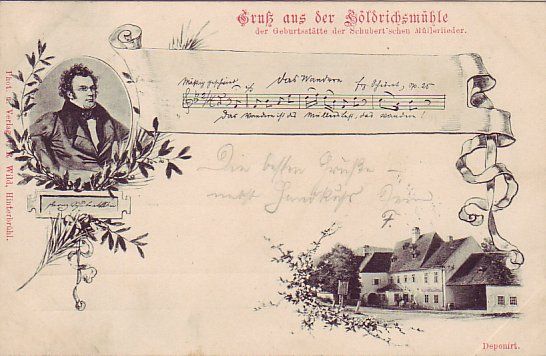 Gruß aus der Höldrichsmühle
der Geburtsstätte der Schubert'schen Müllerlieder.
Mäßig geschwind
Das Wandern
Frz Schubert, op. 25
Das Wandern ist des Müllers Lust, das Wandern!
Die besten Grüße
nebst Handkuss
F.
Phot. u. Verlag v. R. Wild, Hinterbrühl.
Deponirt.